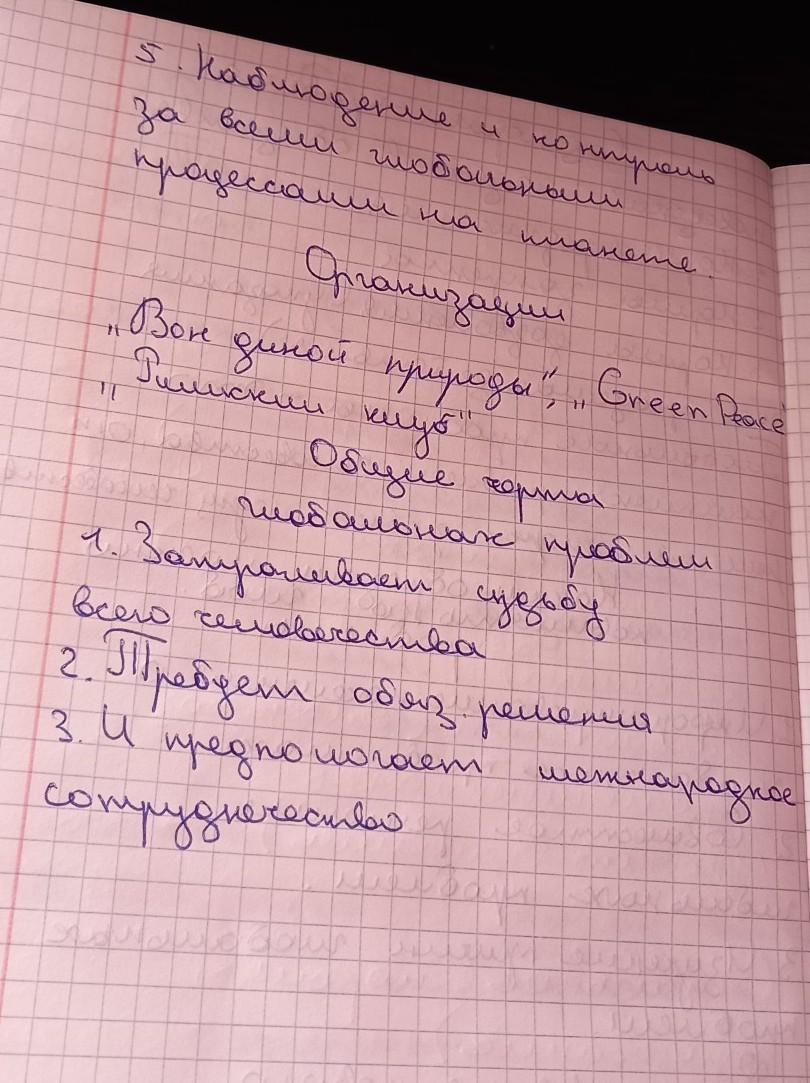 5. Наблюдение и контроль
за всеми глобольными
процессами на планете.
Организации
„Вон дикой природы", „Green Peace"
„Римский клуб"
Общие черта
глобальных проблем
1. Затрагивает судьбу
всего человечества
2. Требует обяз. решения
3. И предпологает межнародное
сотрудничество